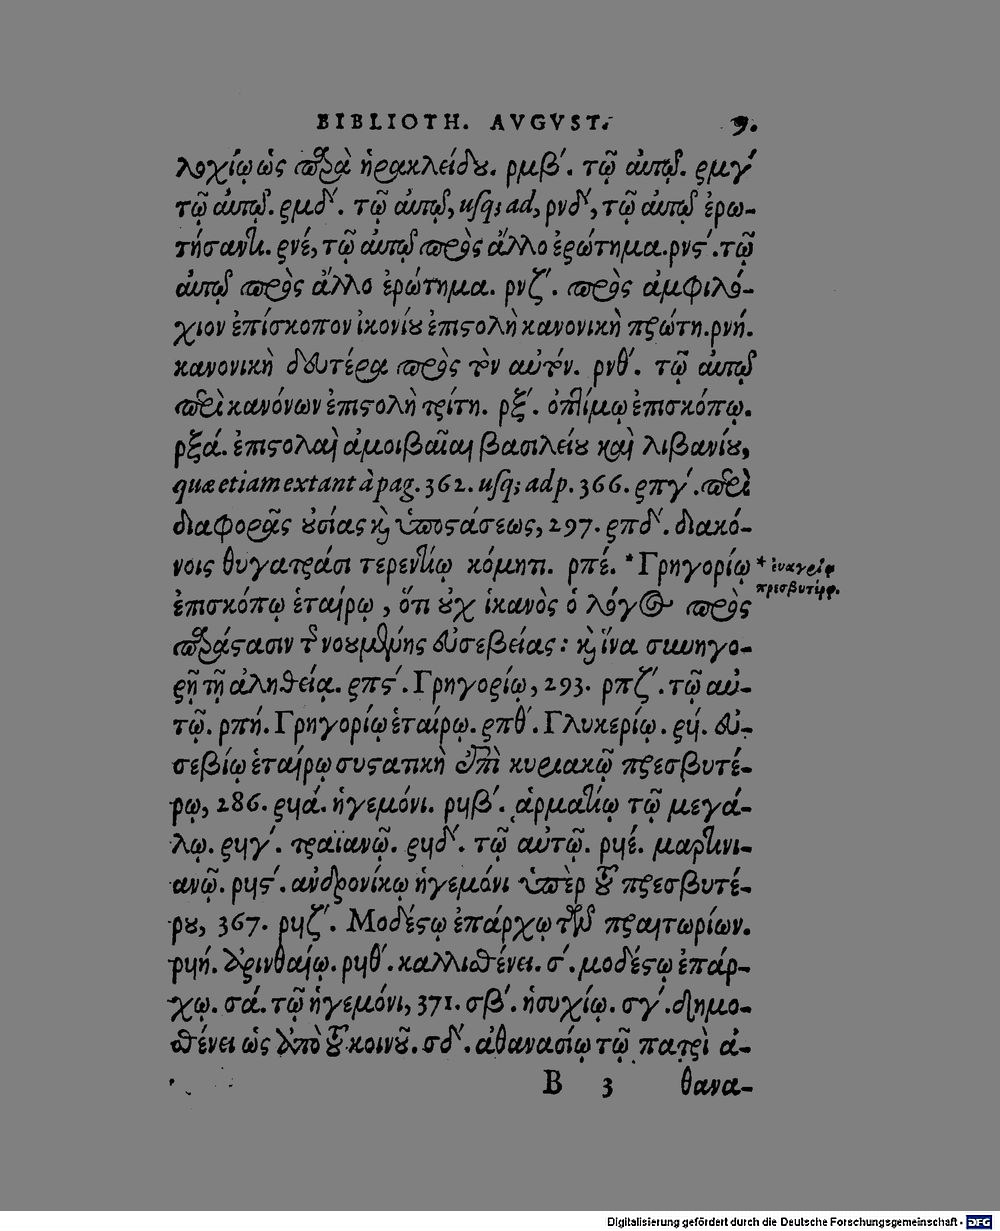 BIBLIOTH. AVGVST. 9.
λοχίῳ ὡς παρὰ ἡρακλείδου. ρμβ´. τῷ αὐτῷ. ρμγ´
τῷ αὐτῷ. ρμδ´. τῷ αὐτῷ, usq; ad, ρνδ´, τῷ αὐτῷ ἐρω-
τήσαντι. ρνέ, τῷ αὐτῷ πρὸς ἄλλο ἐρώτημα. ρνς´. τῷ
αὐτῷ πρὸς ἄλλο ἐρώτημα. ρνζ´. πρὸς ἀμφιλό-
χιον ἐπίσκοπον ἰκονίου ἐπιστολὴ κανονικὴ πρώτη. ρνή.
κανονικὴ δευτέρα πρὸς τὸν αὐτόν. ρνθ´. τῷ αὐτῷ
περὶ κανόνων ἐπιστολὴ τρίτη. ρξ´. ὀπτίμῳ ἐπισκόπῳ.
ρξά. ἐπιστολαὶ ἀμοιβαῖαι βασιλείου καὶ λιβανίου,
quæ etiam extant à pag. 362. usq; ad p. 366. ρπγ´. περὶ
διαφορᾶς οὐσίας καὶ ὑποστάσεως, 297. ρπδ´. διακό-
νοις θυγατράσι τερεντίῳ κόμητι. ρπέ. *Γρηγορίῳ
* ἐυαγρίῳ
πρεσβυτέρῳ.
ἐπισκόπῳ ἑταίρῳ, ὅτι οὐχ ἱκανὸς ὁ λόγος πρὸς
παράστασιν τῆς νουμένης εὐσεβείας: καὶ ἵνα συνηγο-
ρῇ τῇ ἀληθείᾳ. ρπς´. Γρηγορίῳ, 293. ρπζ´. τῷ αὐ-
τῷ. ρπή. Γρηγορίῳ ἑταίρῳ. ρπθ´. Γλυκερίῳ. ρϟ´. εὐ-
σεβίῳ ἑταίρῳ συστατικὴ ἐπὶ κυριακῷ πρεσβυτέ-
ρῳ, 286. ρϟά. ἡγεμόνι. ρϟβ´. ἁρματίῳ τῷ μεγά-
λῳ. ρϟγ´. τραϊανῷ. ρϟδ´. τῷ αὐτῷ. ρϟέ. μαρτινι-
ανῷ. ρϟς´. ἀνδρονίκῳ ἡγεμόνι ὑπὲρ τοῦ πρεσβυτέ-
ρου, 367. ρϟζ´. Μοδέστῳ ἐπάρχῳ τῶν πραιτωρίων.
ρϟή. ἀρινθαίῳ. ρϟθ´. καλλισθένει. σ´. μοδέστῳ ἐπάρ-
χῳ. σά. τῷ ἡγεμόνι, 371. σβ´. ἡσυχίῳ. σγ´. δημο-
σθένει ὡς ἀπὸ τοῦ κοινοῦ. σδ´. ἀθανασίῳ τῷ πατρὶ ἀ-
B 3 θανα-
Digitalisierung gefördert durch die Deutsche Forschungsgemeinschaft - DFG